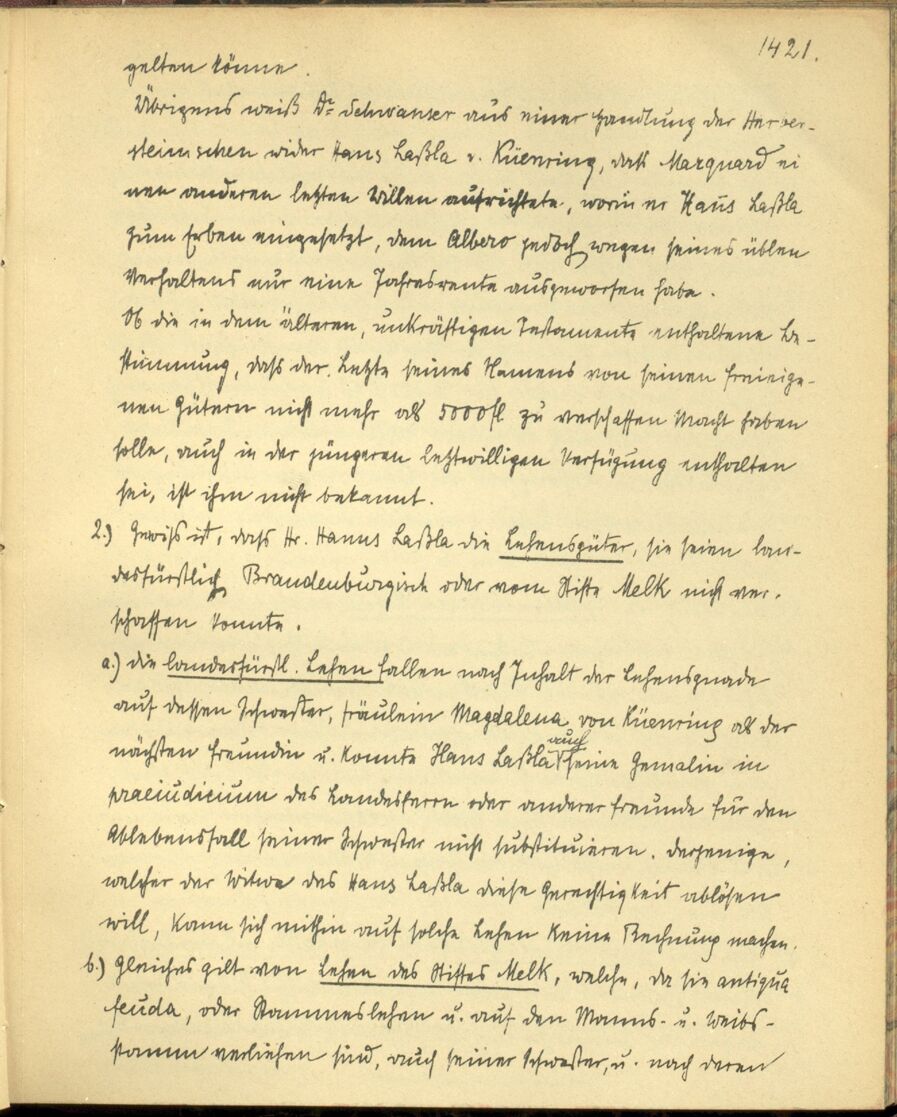 1421.
gelten könne.
Übrigens weiß Dr Schwanser aus einer Handlung der Herber-
steinischen wider Hans Laßla v. Küenring, daß Marquard ei
nen anderen letzten Willen aufrichtete, worin er Hans Laßla
zum Erben eingesetzt, dem Albero jedoch wegen seines üblen
Verhaltens nur eine Jahresrente ausgeworfen habe.
Ob die in dem älteren, unkräftigen Testamente enthaltene Be-
stimmung, daß der Letzte seines Namens von seinen freieige-
nen Gütern nicht mehr als 5000 fl zu verschaffen Macht haben
solle, auch in der jüngeren letztwilligen Verfügung enthalten
sei, ist ihm nicht bekannt.
2.) Gewiß ist, daß Hr. Hanns Laßla die Lehensgüter, sie seien lan-
desfürstlich, Brandenburgisch oder vom Stifte Melk nicht ver-
schaffen konnte.
a.) die landesfürstl. Lehen fallen nach Inhalt der Lehensgnade
auf dessen Schwester, Fräulein Magdalena von Küenring als der
nächsten Freundin u. konnte Hans Laßla auch seine Gemalin in
praeiudicium des Landesherrn oder anderer Freunde für den
Ablebensfall seiner Schwester nicht substituieren. Derjenige,
welcher der Witwe des Hans Laßla diese Gerechtigkeit ablösen
will, kann sich mithin auf solche Lehen keine Rechnung machen.
b.) Gleiches gilt von Lehen des Stiftes Melk, welche, da sie antiqua
feuda, oder Stammeslehen u. auf den Manns- u. Weibs-
stamm verliehen sind, auch seiner Schwester, u. nach deren